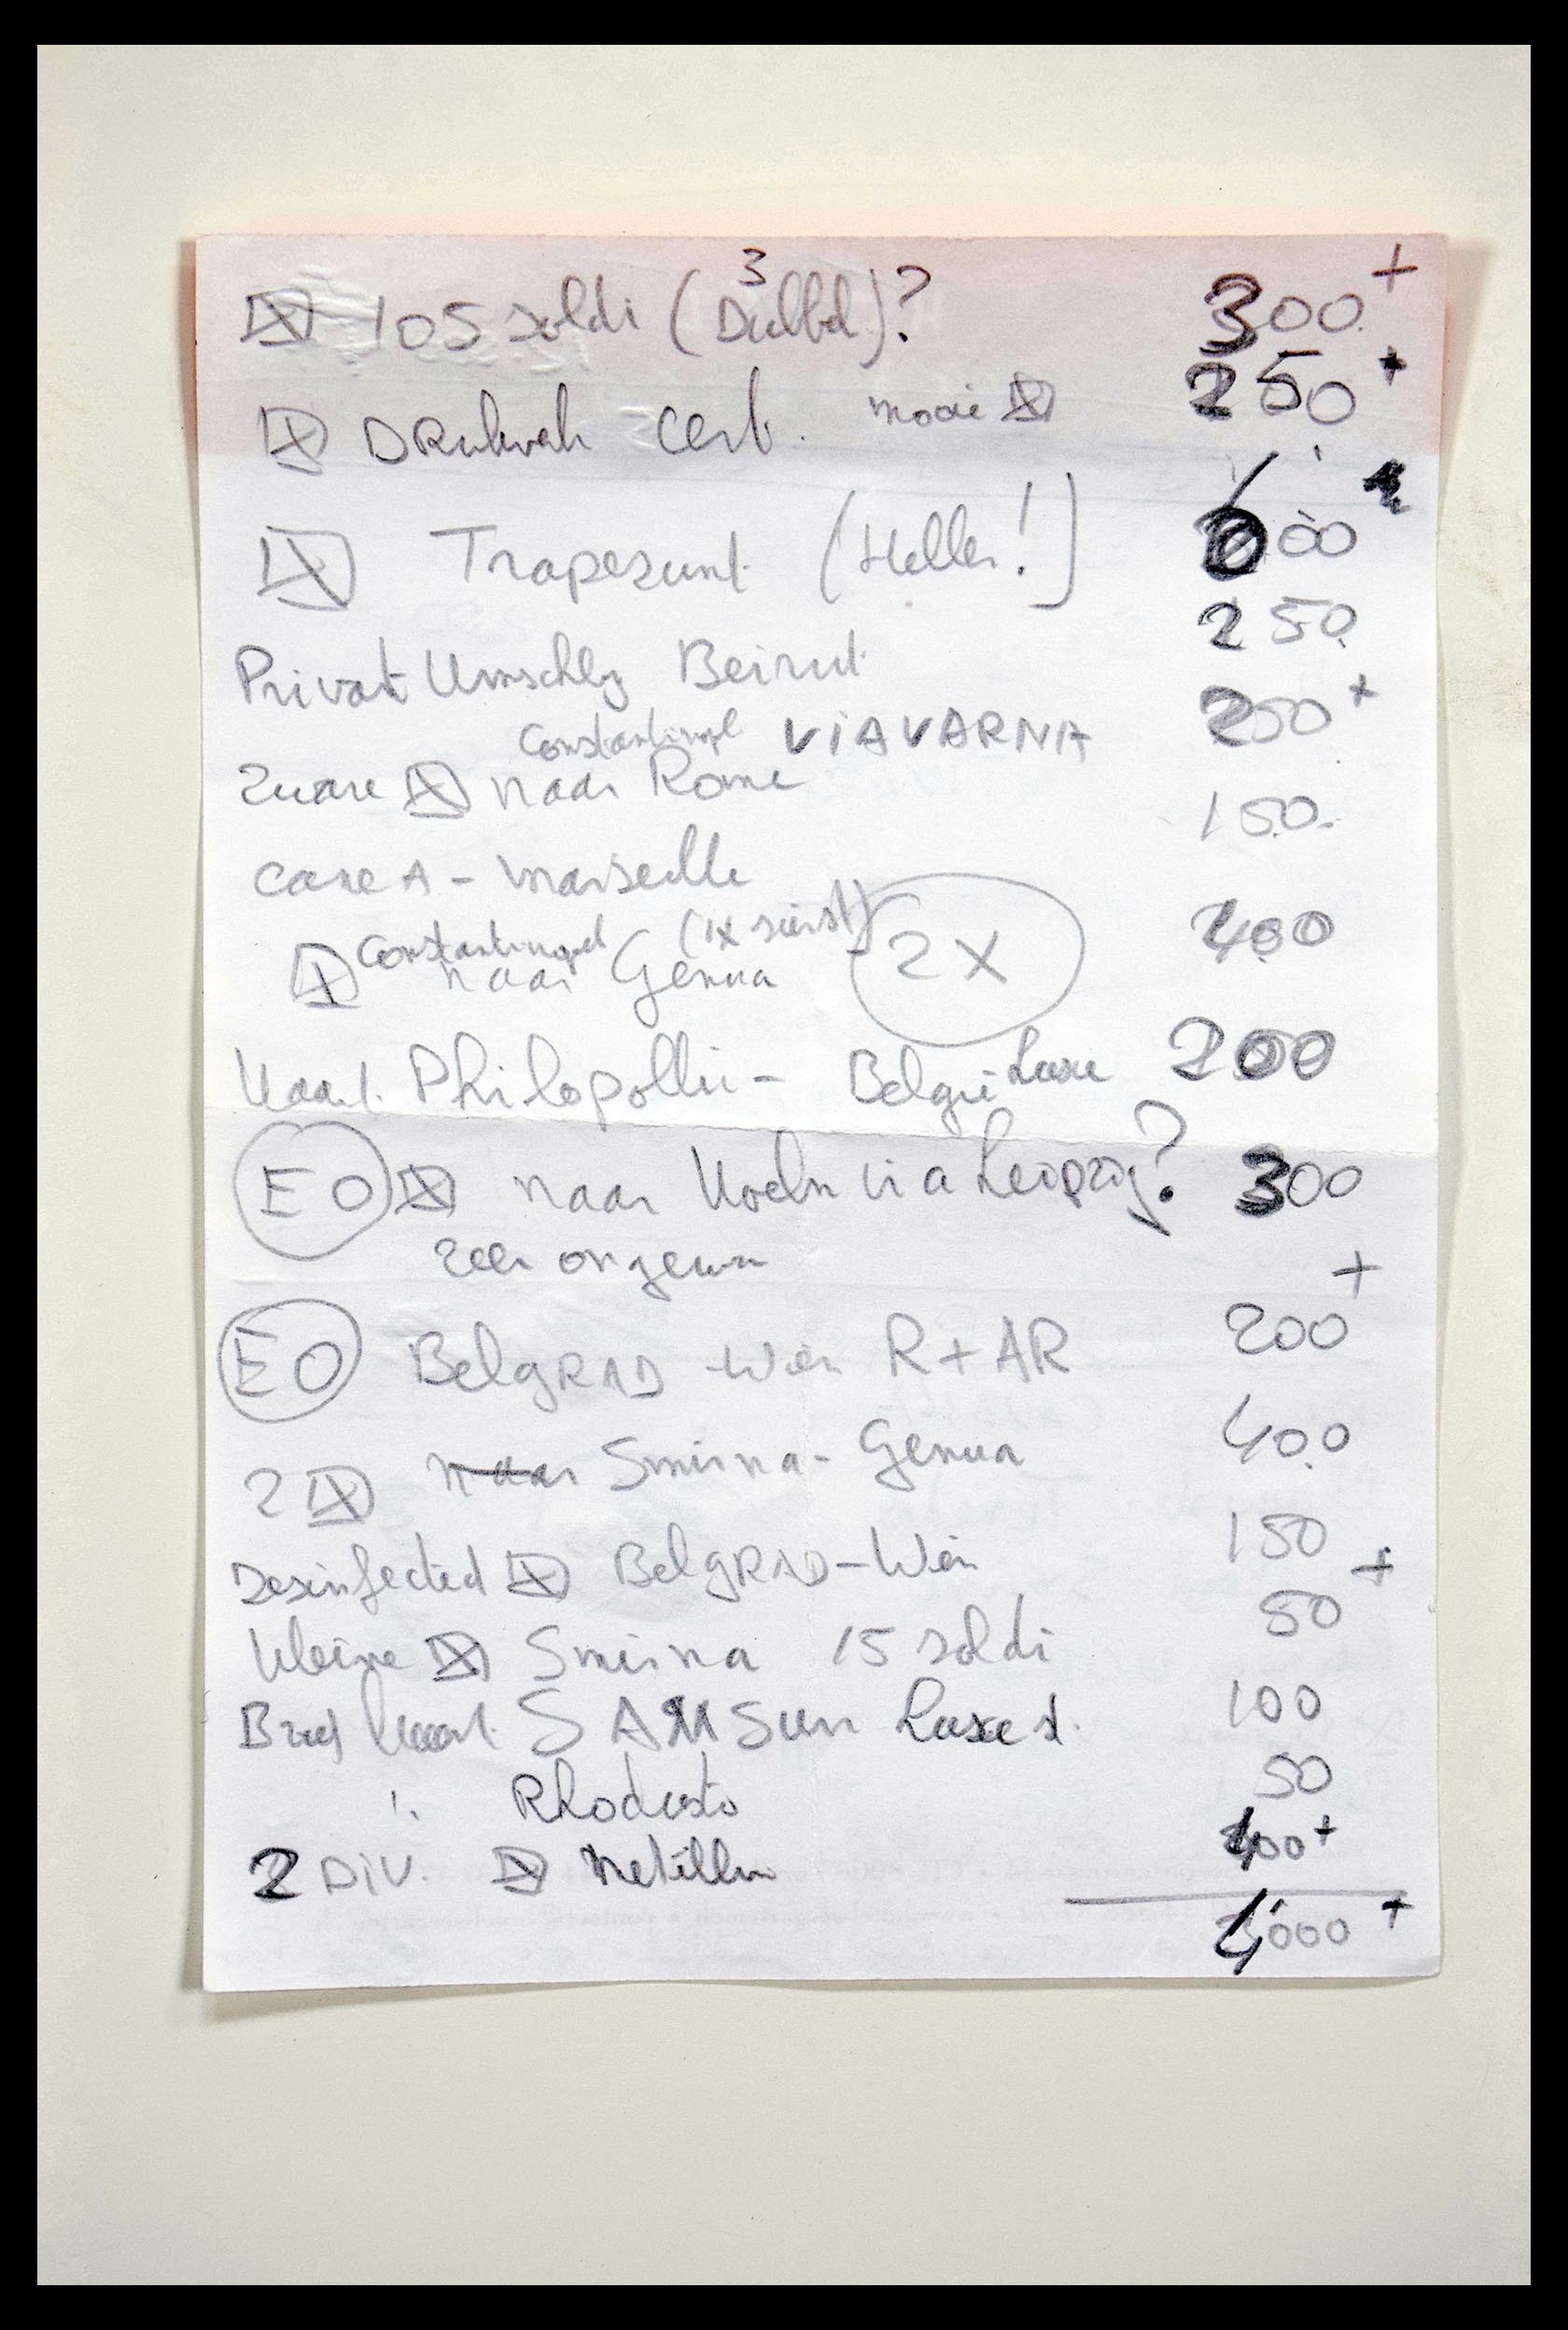 105 soldi (3 )? 300 +
Cert. mooie 250 +
Trapezunt (Heller!) 600
Privat Umschlg Beirut 250
Constantinopel VIA VARNA 250 +
Zware naar Rome
Case A - Marseille 150
Constantinopel (1x
naar Genua 2X 400
Kaart. Philopollii - België Luxe 200
EO naar Koeln via Leipzig? 300
zeer ongewn
EO BelgRAD - Wien R + AR 200 +
2 naar Smirna - Genua 400
Desinfected BelgRAD - Wien 150
Kleine Smirna 15 soldi 50 +
kaart. SAMSun Luxe st. 100
". Rhodosto 50
2 DIV. Metillin 400 +
4000 +